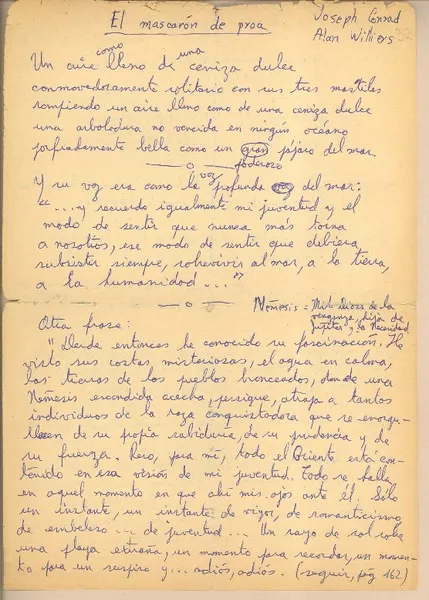 El mascarón de proa
Joseph Conrad
Alan Williers
32
como una
Un aire lleno de ceniza dulce
conmovedoramente solitario con sus tres mastiles
rompiendo un aire lleno como de una ceniza dulce
una arboladura no vencida en ningún océano
porfiadamente bella como un gran pájaro del mar.
poderoso
voz
Y su voz era como la profunda voz del mar:
"....y recuerdo igualmente mi juventud y el
modo de sentir que nunca más torna
a nosotros, ese modo de sentir que debiera
subsistir siempre, sobrevivir al mar, a la tierra,
a la humanidad..."
Némesis = Mit. Diosa de la
venganza, hija de
Jupiter y la Necesidad
Otra frase:
"Desde entonces he conocido su fascinación. He
visto sus costas misteriosas, el agua en calma,
las tierras de los pueblos bronceados, donde una
Némesis escondida acecha, persigue, atrapa a tantos
individuos de la raza conquistadora que se enorgu-
llecen de su propia sabiduría, de su prudencia y de
su fuerza. Pero, para mí, todo el Oriente está con-
tenido en esa visión de mi juventud. Todo se halla
en aquel momento en que abí mis ojos ante él. Sólo
un instante, un instante de vigor, de romanticismo,
de embeleso... de juventud... Un rayo de sol sobre
una playa extraña, un momento para recordar, un momen-
to para un suspiro y... adiós, adiós. (seguir, pág 162)